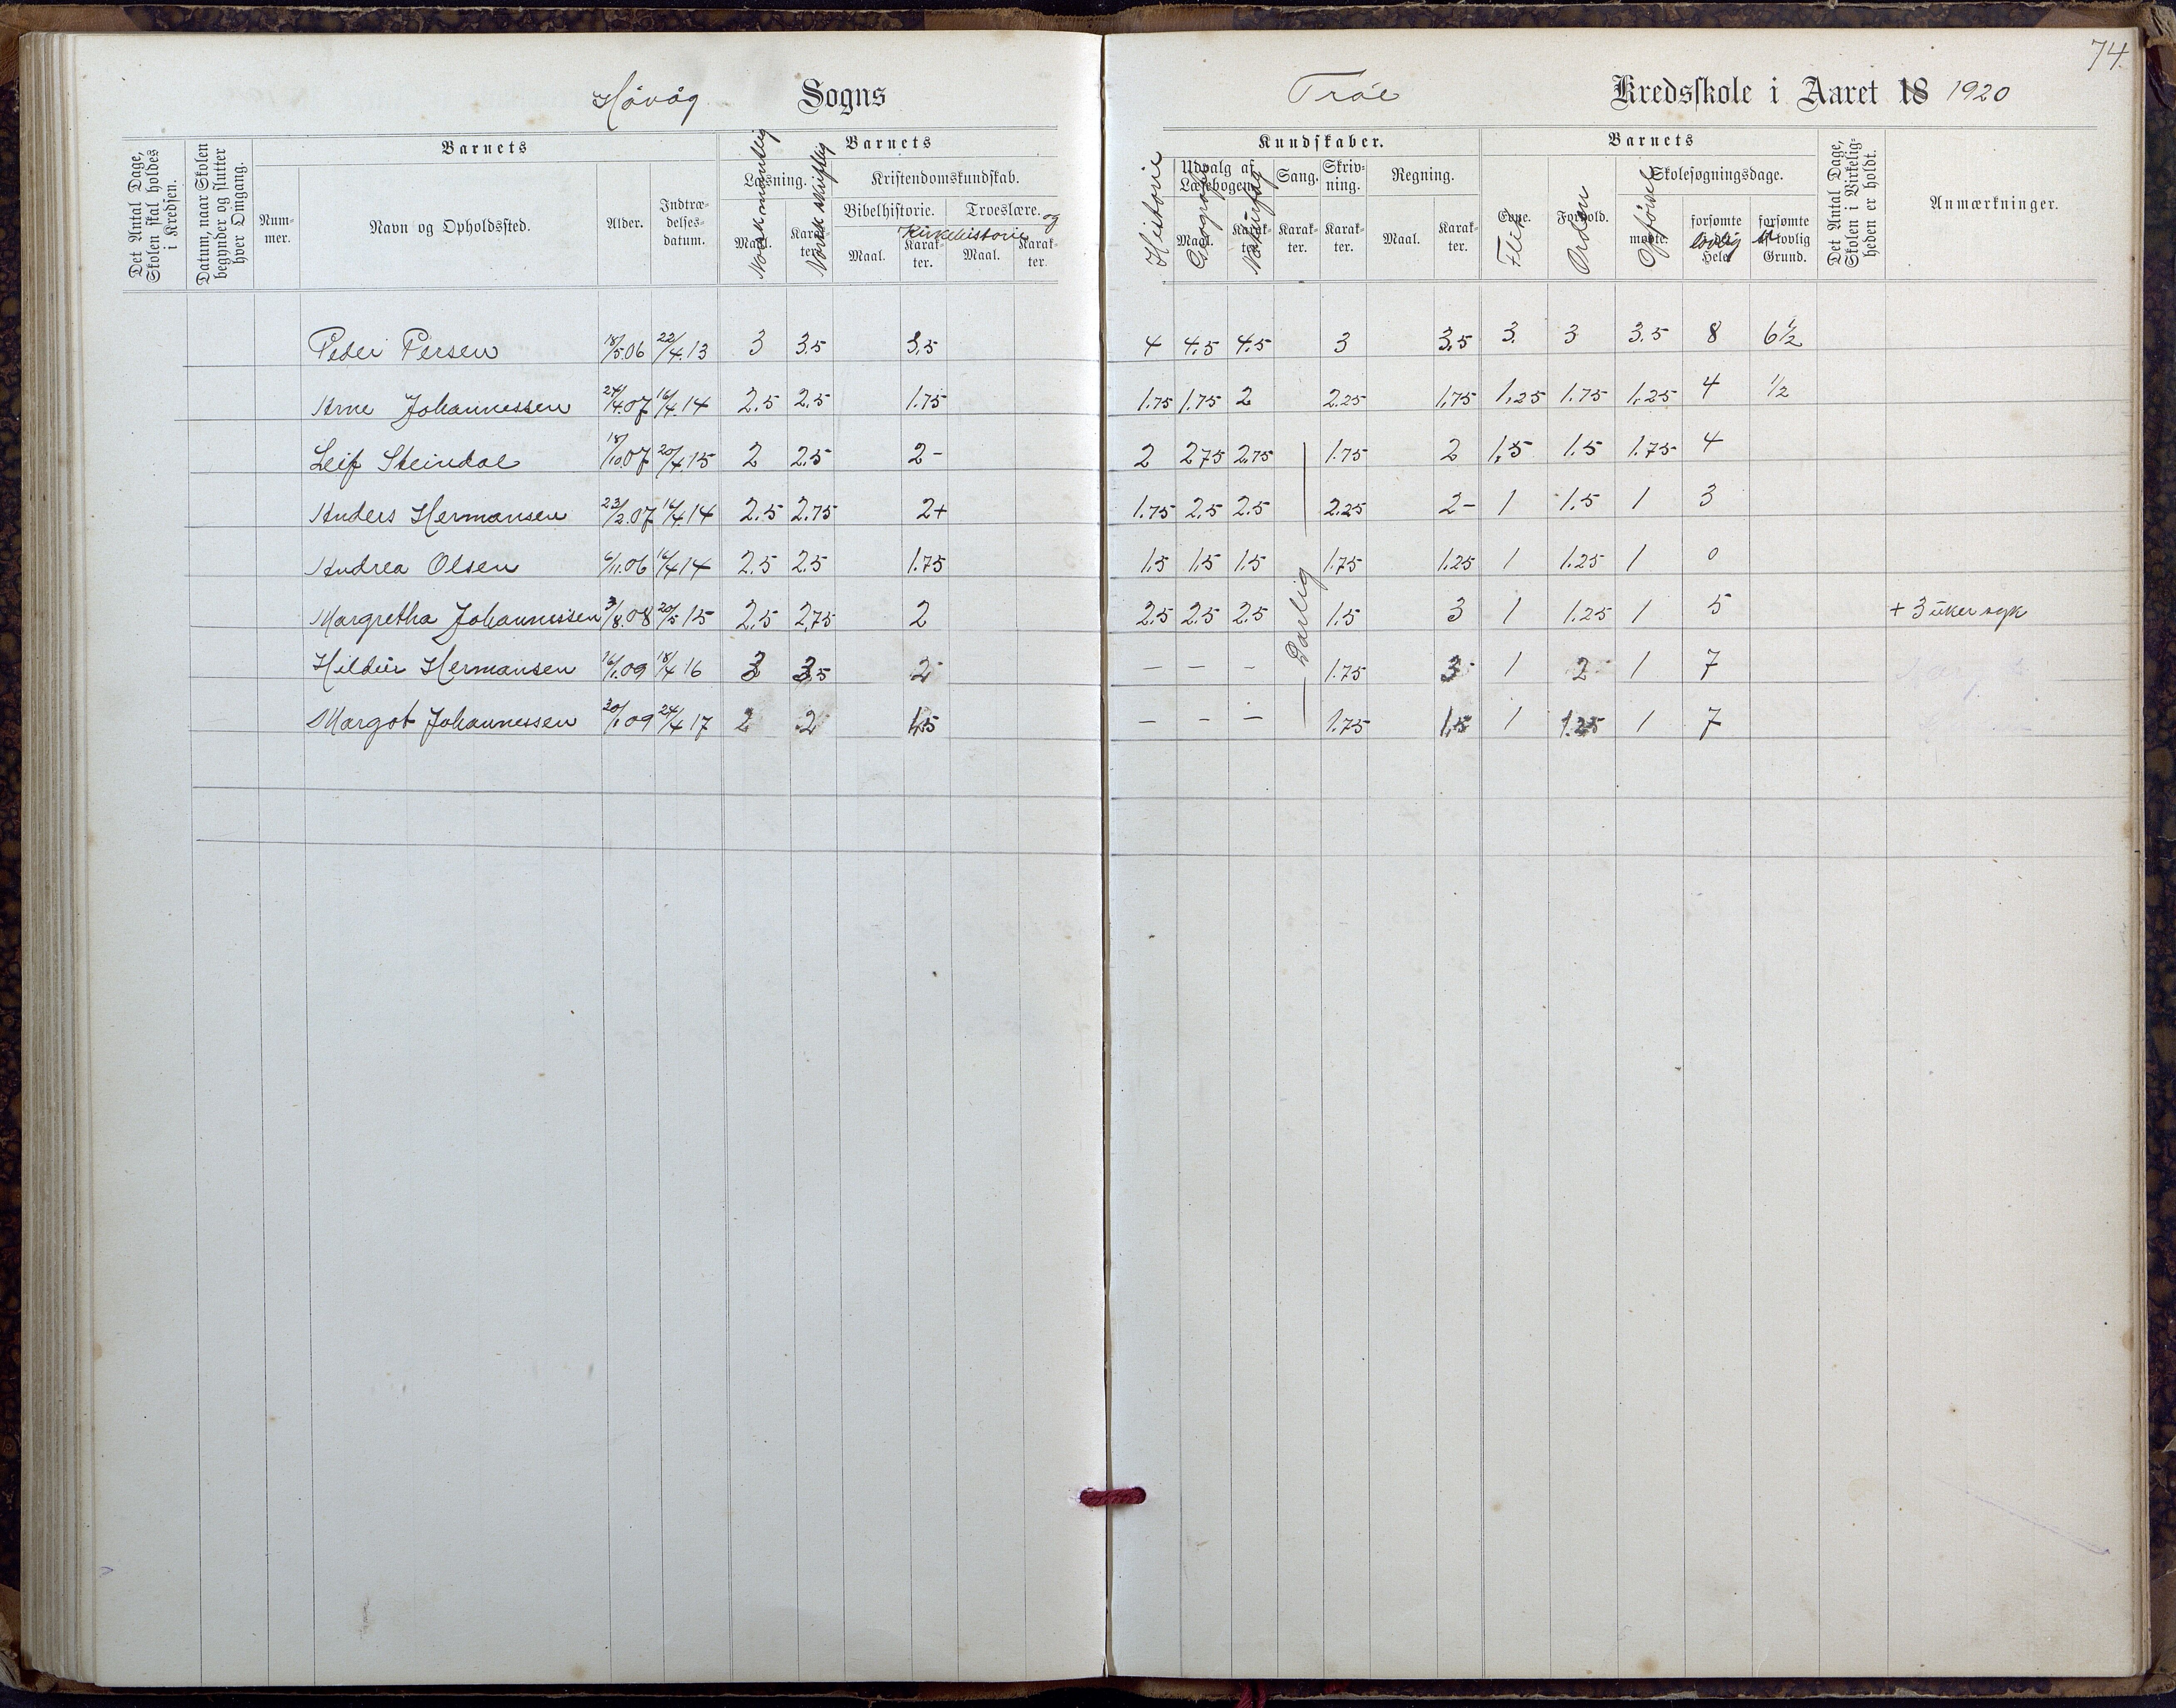 74.
Høvåg Sogns
Trøe Kredsskole i Aaret 18 1920
Det Antal Dage, Skolen skal holdes i Kredsen.
Datum, naar Skolen begynder og slutter hver Omgang.
Barnets
Nummer.
Navn og Opholdssted.
Alder.
Indtrædelsesdatum.
Barnets
Læsning.
Maal.
Norsk mundtlig
Karakter.
Norsk skriftlig
Kristendomskundskab.
Bibelhistorie.
Troeslære. og
Kirkehistorie
Maal.
Karakter.
Maal.
Karakter.
Historie
Kundskaber.
Udvalg af Læsebogen.
Maal.
Geografi
Karakter.
Naturfag
Sang.
Karakter.
Skrivning.
Karakter.
Regning.
Maal.
Karakter.
Barnets
Evne.
Flid
Forhold.
Orden
Skolesøgningsdage.
mødte.
Opførsel
forsømte i det Hele.
lovlig
forsømte af lovlig Grund.
u
Det Antal Dage, Skolen i Virkeligheden er holdt.
Anmærkninger.
Peder Persen 18/5.06 22/4.13 3 3.5 3,5 4 4.5 4.5 3 3,5 3. 3 3.5 8 6½
Arne Johannessen 24/4.07 16/4.14 2.5 2.5 1.75 1.75 1.75 2 2.25 1,75 1,25 1.75 1.25 4 ½
Leif Steindal 18/10.07 20/4.15 2 2.5 2- 2 2.75 2.75 1.75 2 1,5 1.5 1.75 4
Anders Hermansen 23/2.07 16/4.14 2.5 2.75 2+ 1.75 2.5 2.5 2.25 2- 1 1.5 1 3
Andrea Olsen 6/11.06 16/4.14 2.5 2.5 1.75 1.5 1.5 1.5 1.75 1.25 1 1.25 1 0
Margretha Johannessen 3/8.08 20/5 15 2.5 2,75 2 2.5 2.5 2.5 1.5 3 1 1.25 1 5 + 3 uker syk
Hildur Hermansen 16/1.09 18/4 16 3 3,5 2- — — — 1.75 3- 1 2- 1 7
Margot Johannessen 20/1 09 24/4 17 2 2 1,5 — — — 1.75 1,5 1 1.25 1 7
— Darlig —